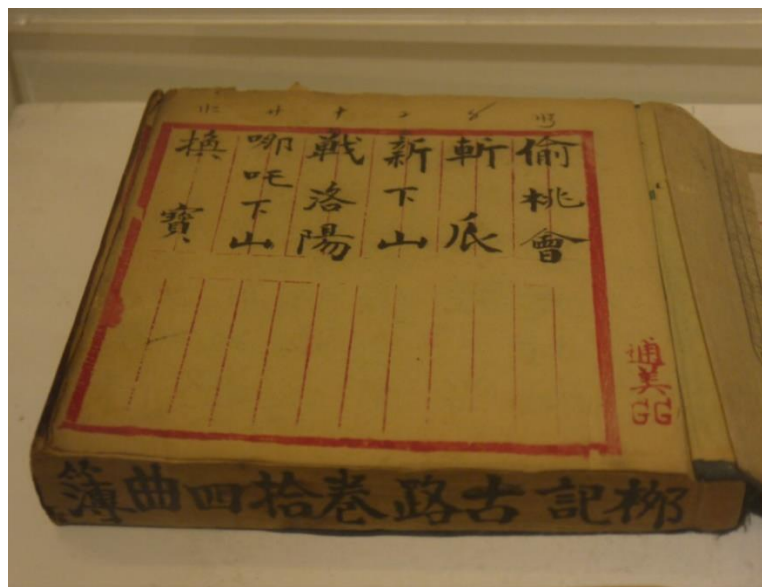 偷桃會
斬瓜
新下山
戰洛陽
哪吒下山
換寶
通美
GG
栁記古路卷拾四曲簿